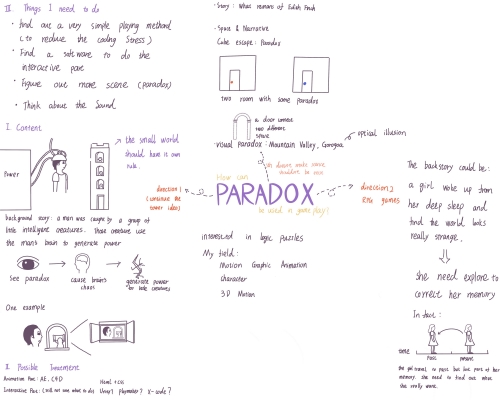 III. Things I need to do
· find out a very simple playing method
(to reduce the coding stress)
· Find a software to do the
interactive part
· Figure out more scene (paradox)
· Think about the sound
I. Content
Power
the small world
should have its own
rule.
background story: a man was caught by a group of
little intelligent creatures. those creature use
the man's brain to generate power
see paradox
cause brain's
chaos
generate power
for little creatures
One example
II. Possible Treatment
Animation Part: AE, C4D
Interactive Part: (still not sure what to do)
Html + CSS
Unity? playmaker? X-code?
· Story: What remains of Edith Finch
· Space & Narrative
Cube escape: Paradox
two room with some paradox
a door connect
two different
space
Visual Paradox: Mountain Valley, Gorogoa
optical illusion
How can
PARADOX
be used in game play?
direction 1
(continue the
tower idea)
direction 2
RPG games
interested in logic puzzles
My field:
Motion Graphic Animation
Character
3D Motion
The backstory could be:
a girl woke up from
her deep sleep and
find the world looks
really strange.
She need explore to
correct her memory
In fact:
time
past
present
the girl travel to past but lose part of her
memory. she need to find out what
she really want.